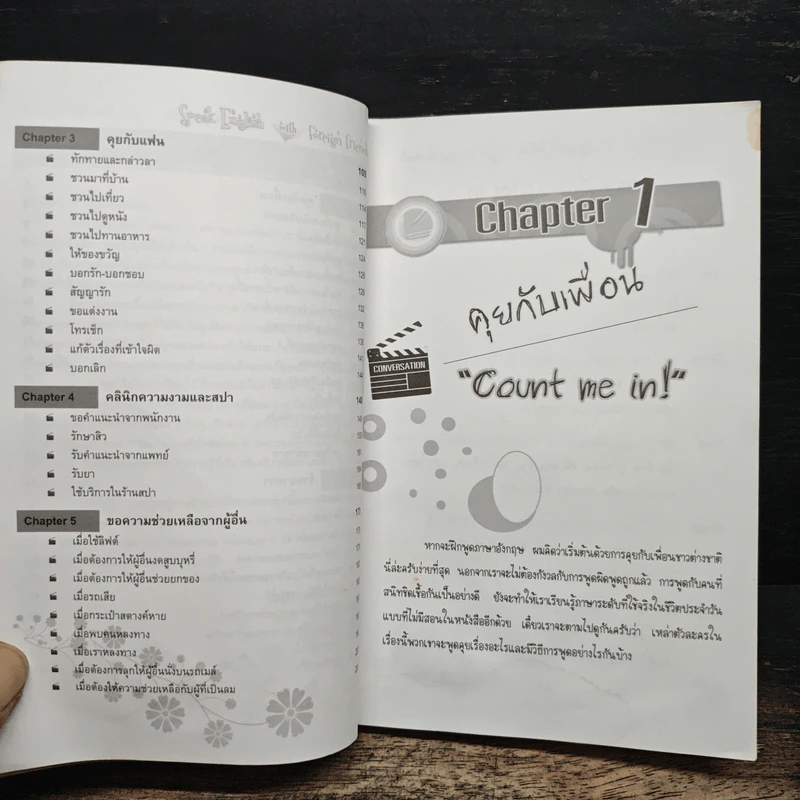 Speak English with foreign
Chapter 3 คุยกับแฟน
ทักทายและกล่าวลา 109
ชวนมาที่บ้าน
ชวนไปเที่ยว
ชวนไปดูหนัง 117
ชวนไปทานอาหาร 121
ให้ของขวัญ 124
บอกรัก-บอกชอบ
สัญญารัก
ขอแต่งงาน
โทรเช็ก
แก้ตัวเรื่องที่เข้าใจผิด
บอกเลิก
Chapter 4 คลินิกความงามและสปา
ขอคำแนะนำจากพนักงาน
รักษาสิว
รับคำแนะนำจากแพทย์
รับยา
ใช้บริการในร้านสปา
Chapter 5 ขอความช่วยเหลือจากผู้อื่น
เมื่อใช้ลิฟต์
เมื่อต้องการให้ผู้อื่นงดสูบบุหรี่
เมื่อต้องการให้ผู้อื่นช่วยยกของ
เมื่อรถเสีย
เมื่อกระเป๋าสตางค์หาย
เมื่อพบคนหลงทาง
เมื่อเราหลงทาง
เมื่อต้องการลุกให้ผู้อื่นนั่งบนรถเมล์
เมื่อต้องให้ความช่วยเหลือกับผู้ที่เป็นลม
Chapter 1
คุยกับเพื่อน
CONVERSATION
"Count me in!"
หากจะฝึกพูดภาษาอังกฤษ ผมคิดว่าเริ่มต้นด้วยการคุยกับเพื่อนชาวต่างชาติ
นี่ล่ะครับง่ายที่สุด นอกจากเราจะไม่ต้องกังวลกับการพูดผิดพูดถูกแล้ว การพูดกับคนที่
สนิทชิดเชื้อกันเป็นอย่างดี ยังจะทำให้เราเรียนรู้ภาษาระดับที่ใช้จริงในชีวิตประจำวัน
แบบที่ไม่มีสอนในหนังสืออีกด้วย เดี๋ยวเราจะตามไปดูกันครับว่า เหล่าตัวละครใน
เรื่องนี้พวกเขาจะพูดคุยเรื่องอะไรและมีวิธีการพูดอย่างไรกันบ้าง